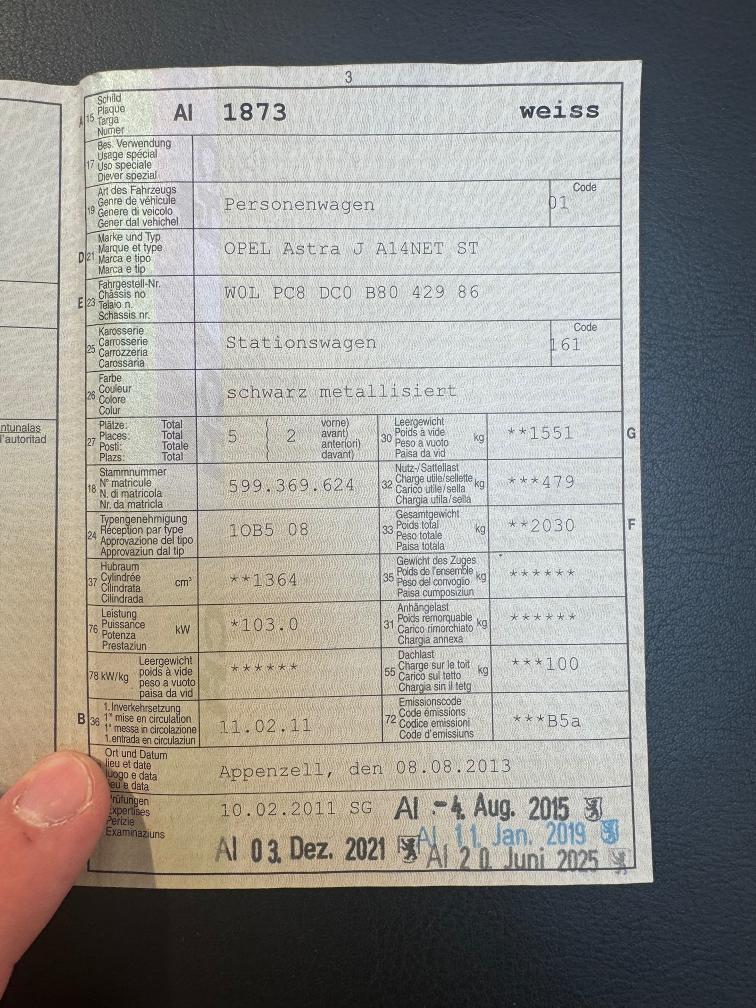 3
A 15 Schild Plaque Targa Numer AI 1873 weiss
17 Bes. Verwendung Usage spécial Uso speciale Diever spezial
19 Art des Fahrzeugs Genre de véhicule Genere di veicolo Gener dal vehichel Personenwagen Code 01
D 21 Marke und Typ Marque et type Marca e tipo Marca e tip OPEL Astra J A14NET ST
E 23 Fahrgestell-Nr. Châssis no Telaio n. Schassis nr. W0L PC8 DC0 B80 429 86
25 Karosserie Carrosserie Carrozzeria Carossaria Stationswagen Code 161
26 Farbe Couleur Colore Colur schwarz metallisiert
ntunalas
l'autoritad
27 Plätze: Total Places: Total Posti: Totale Plazs: Total 5 ( 2 vorne) avant) anteriori) davant)
30 Leergewicht Poids à vide Peso a vuoto Paisa da vid kg **1551 G
18 Stammnummer N° matricule N. di matricola Nr. da matricla 599.369.624
32 Nutz-/Sattellast Charge utile/sellette Carico utile/sella Chargia utila/sella kg ***479
24 Typengenehmigung Réception par type Approvazione del tipo Approvaziun dal tip 1OB5 08
33 Gesamtgewicht Poids total Peso totale Paisa totala kg **2030 F
37 Hubraum Cylindrée Cilindrata Cilindrada cm³ **1364
35 Gewicht des Zuges Poids de l'ensemble Peso del convoglio Paisa cumposiziun kg ******
76 Leistung Puissance Potenza Prestaziun kW *103.0
31 Anhängelast Poids remorquable Carico rimorchiato Chargia annexa kg ******
78 kW/kg Leergewicht poids à vide peso a vuoto paisa da vid ******
55 Dachlast Charge sur le toit Carico sul tetto Chargia sin il tetg kg ***100
B 36 1.Inverkehrsetzung 1re mise en circulation 1a messa in circolazione 1.entrada en circulaziun 11.02.11
72 Emissionscode Code émissions Codice emissioni Code d'emissiuns ***B5a
Ort und Datum lieu et date luogo e data lieu e data Appenzell, den 08.08.2013
Prüfungen Expertises Perizie Examinaziuns 10.02.2011 SG AI -4. Aug. 2015
AI 11. Jan. 2019
AI 03. Dez. 2021 AI 20. Juni 2025